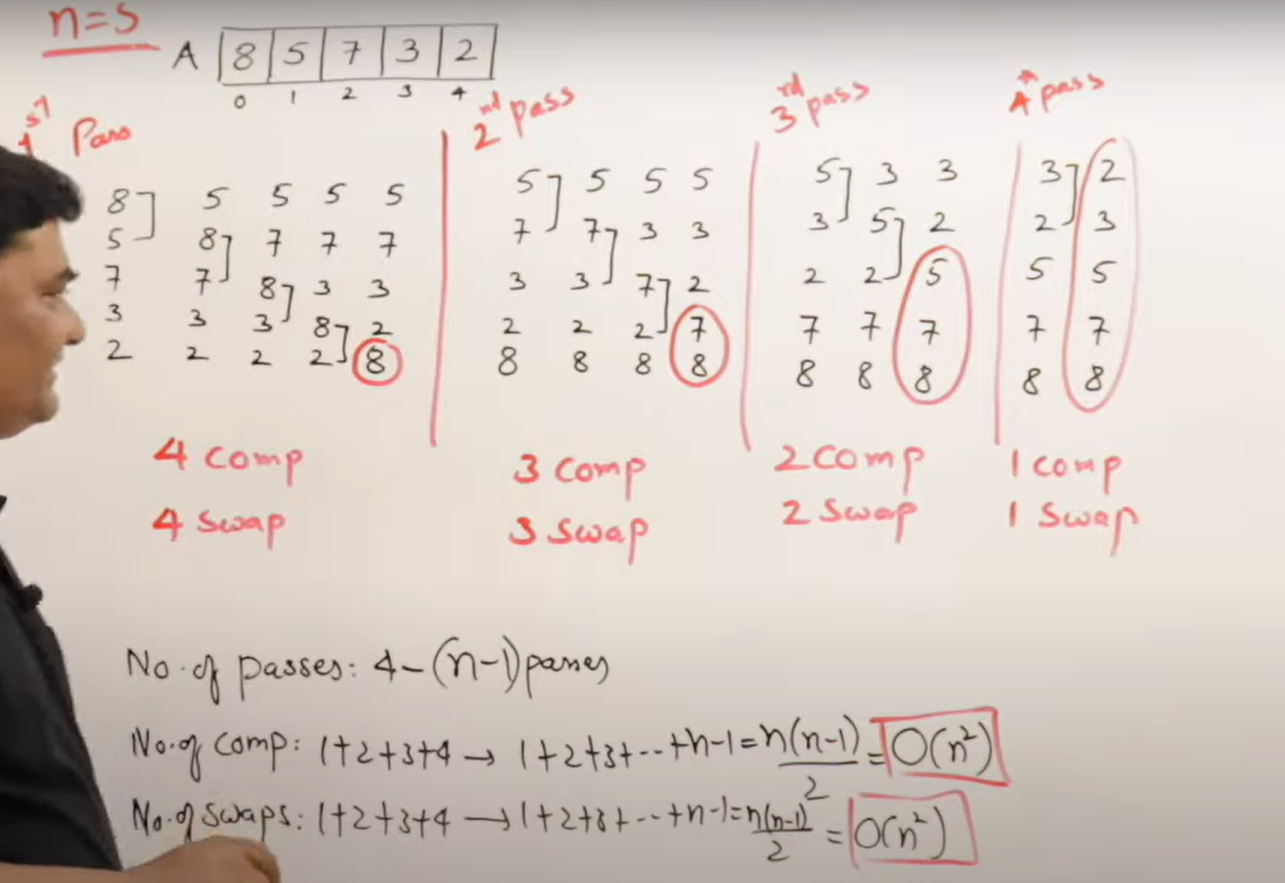 n=5
A 8 5 7 3 2
0 1 2 3 4
1st Pass
8 5 5 5 5
5 8 7 7 7
7 7 8 3 3
3 3 3 8 2
2 2 2 2 8
4 Comp
4 Swap
2nd pass
5 5 5 5
7 7 3 3
3 3 7 2
2 2 2 7
8 8 8 8
3 Comp
3 Swap
3rd pass
5 3 3
3 5 2
2 2 5
7 7 7
8 8 8
2 Comp
2 Swap
4th pass
3 2
2 3
5 5
7 7
8 8
1 Comp
1 Swap
No. of passes: 4 – (n-1) passes
No. of Comp: 1+2+3+4 → 1+2+3+--+n-1 = n(n-1)/2 = O(n²)
No. of swaps: 1+2+3+4 → 1+2+3+--+n-1 = n(n-1)/2 = O(n²)